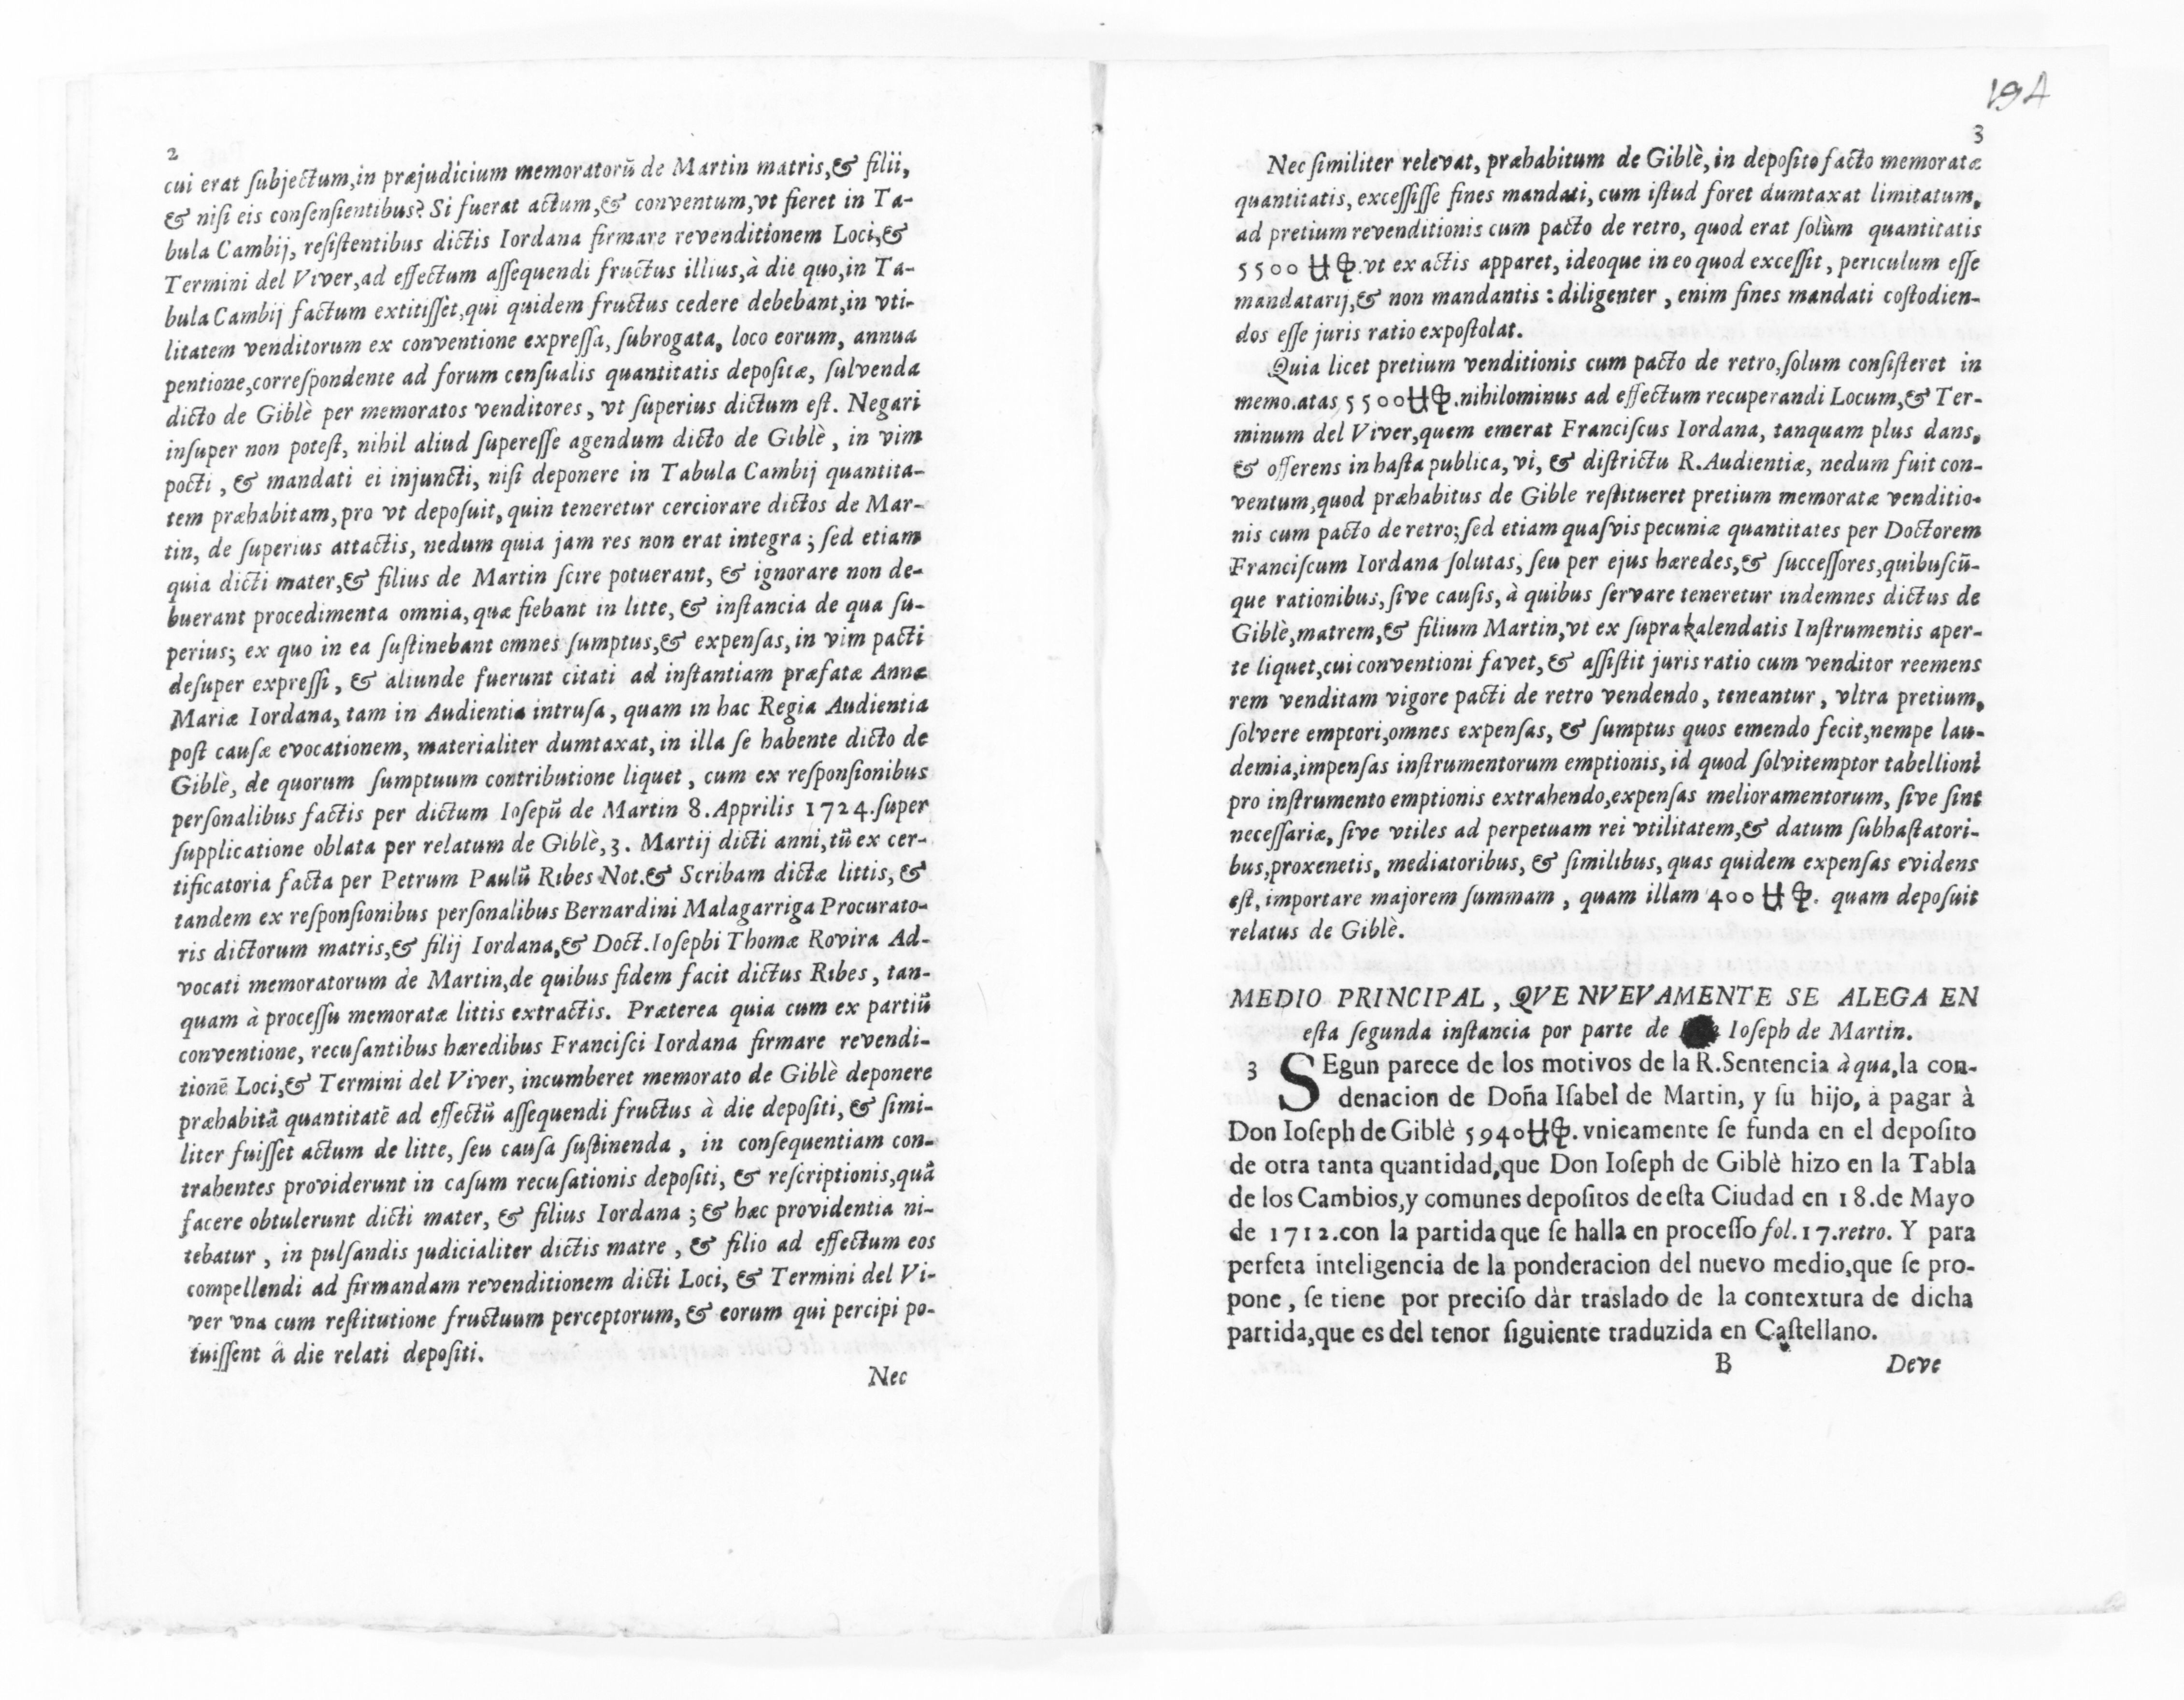 2
cui erat ſubjectum,in præjudicium memoratorũ de Martin matris,& filii,
& niſi eis conſenſientibus? Si fuerat actum,& conventum,vt fieret in Ta-
bula Cambij, reſiſtentibus dictis Iordana firmare revenditionem Loci,&
Termini del Viver,ad effectum aſſequendi fructus illius,à die quo,in Ta-
bula Cambij factum extitiſſet,qui quidem fructus cedere debebant,in vti-
litatem venditorum ex conventione expreſſa, ſubrogata, loco eorum, annua
pentione,correſpondente ad forum cenſualis quantitatis depoſitæ, ſulvenda
dicto de Giblè per memoratos venditores, vt ſuperius dictum eſt. Negari
inſuper non poteſt, nihil aliud ſupereſſe agendum dicto de Giblè, in vim
pocti, & mandati ei injuncti, niſi deponere in Tabula Cambij quantita-
tem præhabitam,pro vt depoſuit,quin teneretur cerciorare dictos de Mar-
tin, de ſuperius attactis, nedum quia jam res non erat integra; ſed etiam
quia dicti mater,& filius de Martin ſcire potuerant, & ignorare non de-
buerant procedimenta omnia, quæ fiebant in litte, & inſtancia de qua ſu-
perius; ex quo in ea ſuſtinebant omnes ſumptus,& expenſas, in vim pacti
deſuper expreſſi, & aliunde fuerunt citati ad inſtantiam præfatæ Annæ
Mariæ Iordana, tam in Audientia intruſa, quam in hac Regia Audientia
poſt cauſæ evocationem, materialiter dumtaxat, in illa ſe habente dicto de
Giblè, de quorum ſumptuum contributione liquet, cum ex reſponſionibus
perſonalibus factis per dictum Ioſepũ de Martin 8. Apprilis 1724. ſuper
ſupplicatione oblata per relatum de Giblè, 3. Martij dicti anni, tũ ex cer-
tificatoria facta per Petrum Paulũ Ribes Not.& Scribam dictæ littis, &
tandem ex reſponſionibus perſonalibus Bernardini Malagarriga Procurato-
ris dictorum matris,& filij Iordana,& Doct. Ioſephi Thomæ Rovira Ad-
vocati memoratorum de Martin,de quibus fidem facit dictus Ribes, tan-
quam à proceſſu memoratæ littis extractis. Præterea quia cum ex partiũ
conventione, recuſantibus hæredibus Franciſci Iordana firmare revendi-
tionẽ Loci,& Termini del Viver, incumberet memorato de Giblè deponere
præhabitã quantitatẽ ad effectũ aſſequendi fructus à die depoſiti, & ſimi-
liter fuiſſet actum de litte, ſeu cauſa ſuſtinenda, in conſequentiam con-
trahentes providerunt in caſum recuſationis depoſiti, & reſcriptionis,quã
facere obtulerunt dicti mater, & filius Iordana; & hæc providentia ni-
tebatur, in pulſandis judicialiter dictis matre, & filio ad effectum eos
compellendi ad firmandam revenditionem dicti Loci, & Termini del Vi-
ver vna cum reſtitutione fructuum perceptorum, & eorum qui percipi po-
tuiſſent à die relati depoſiti.
Nec
194
3
Nec ſimiliter relevat, præhabitum de Giblè, in depoſito facto memoratæ
quantitatis, exceſſiſſe fines mandati, cum iſtud foret dumtaxat limitatum,
ad pretium revenditionis cum pacto de retro, quod erat ſolùm quantitatis
5500 ꟸ. vt ex actis apparet, ideoque in eo quod exceſſit, periculum eſſe
mandatarij,& non mandantis: diligenter, enim fines mandati coſtodien-
dos eſſe juris ratio expoſtolat.
Quia licet pretium venditionis cum pacto de retro, ſolum conſiſteret in
memo.atas 5500 . nihilominus ad effectum recuperandi Locum,& Ter-
minum del Viver,quem emerat Franciſcus Iordana, tanquam plus dans,
& offerens in haſta publica, vi, & diſtrictu R. Audientiæ, nedum fuit con-
ventum,quod præhabitus de Gible reſtitueret pretium memoratæ venditio-
nis cum pacto de retro; ſed etiam quaſvis pecuniæ quantitates per Doctorem
Franciſcum Iordana ſolutas, ſeu per ejus hæredes,& ſucceſſores,quibuſcũ-
que rationibus, ſive cauſis, à quibus ſervare teneretur indemnes dictus de
Giblè,matrem,& filium Martin,vt ex ſuprakalendatis Inſtrumentis aper-
te liquet,cui conventioni favet,& aſſiſtit juris ratio cum venditor reemens
rem venditam vigore pacti de retro vendendo, teneantur, vltra pretium,
ſolvere emptori,omnes expenſas, & ſumptus quos emendo fecit,nempe lau-
demia,impenſas inſtrumentorum emptionis, id quod ſolvitemptor tabellioni
pro inſtrumento emptionis extrahendo,expenſas melioramentorum, ſive ſint
neceſſariæ, ſive vtiles ad perpetuam rei vtilitatem,& datum ſubhaſtatori-
bus,proxenetis, mediatoribus, & ſimilibus, quas quidem expenſas evidens
eſt, importare majorem ſummam, quam illam 400 . quam depoſuit
relatus de Giblè.
MEDIO PRINCIPAL, QVE NVEVAMENTE SE ALEGA EN
eſta ſegunda inſtancia por parte de Ioſeph de Martin.
3 SEgun parece de los motivos de la R.Sentencia à qua,la con-
denacion de Doña Iſabel de Martin, y ſu hijo, à pagar à
Don Ioſeph de Giblè 5940 . vnicamente ſe funda en el depoſito
de otra tanta quantidad,que Don Ioſeph de Giblè hizo en la Tabla
de los Cambios,y comunes depoſitos de eſta Ciudad en 18.de Mayo
de 1712.con la partida que ſe halla en proceſſo fol.17.retro. Y para
perfeta inteligencia de la ponderacion del nuevo medio,que ſe pro-
pone, ſe tiene por preciſo dàr traslado de la contextura de dicha
partida,que es del tenor ſiguiente traduzida en Caſtellano.
B Deve